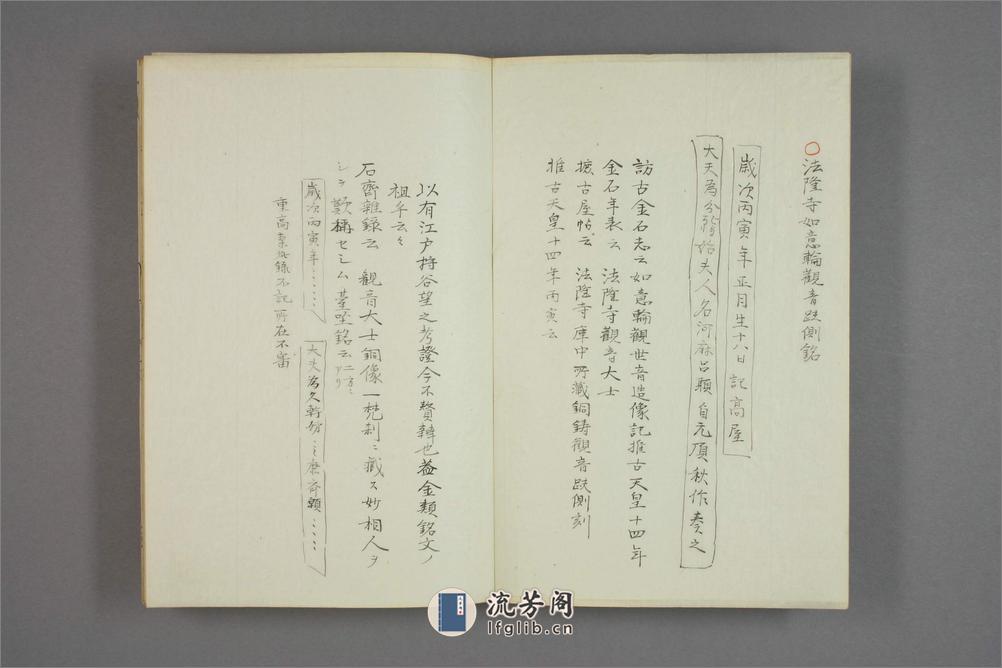 ○法隆寺如意輪觀音趺側銘
歳次丙寅年正月生十八日記高屋
大夫為分韓婦夫人名阿麻古願自元頂秋作奏之
訪古金石志云如意輪觀世音造像記推古天皇十四年
金石年表云 法隆寺觀音大士
摭古屋帖云 法隆寺庫中所藏銅鋳觀音趺側刻
推古天皇十四年丙寅云
以有江戸狩谷望之考證今不贅辯也蓋金類銘文ノ
祖乎云々
石齋雜録云 觀音大士銅像一梵刹ニ藏ス妙相人ヲ
シテ歎稱セシム莖座銘云二方ニアリ
歳次丙寅年……
大夫為久…願……
東高素此録不記所在不審
流芳阁
lfglib.cn